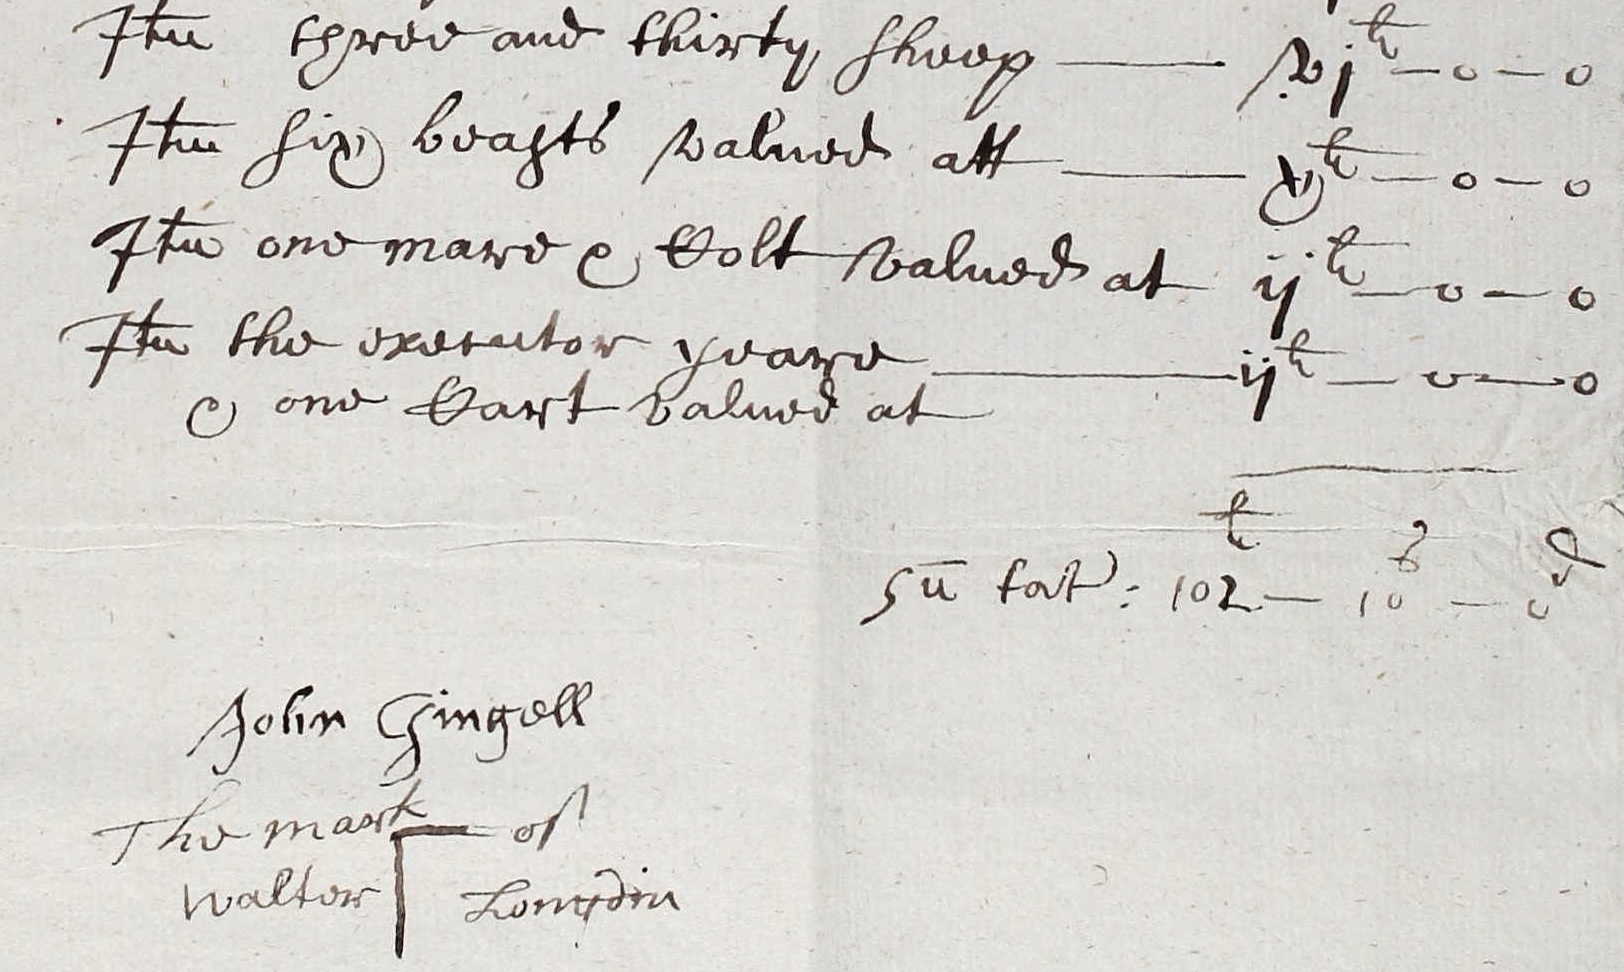 Itm three and thirty sheep — vj li — 0 — 0
Itm six beasts valued att — x li — 0 — 0
Itm one mare & Colt valued at ij li — 0 — 0
Itm the executor yeare — ij li — 0 — 0
& one Cart valued at
li s d
Sū tot: 102 — 10 — 0
John Gingell
The mark of
Walter